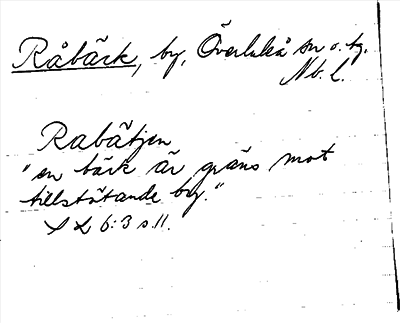 Råbäck, by, Överluleå sn o. tg.
Nb. l.
Rabätjen
"en bäck är gräns mot
tillstötande by."
S L 6:3 s. 11.